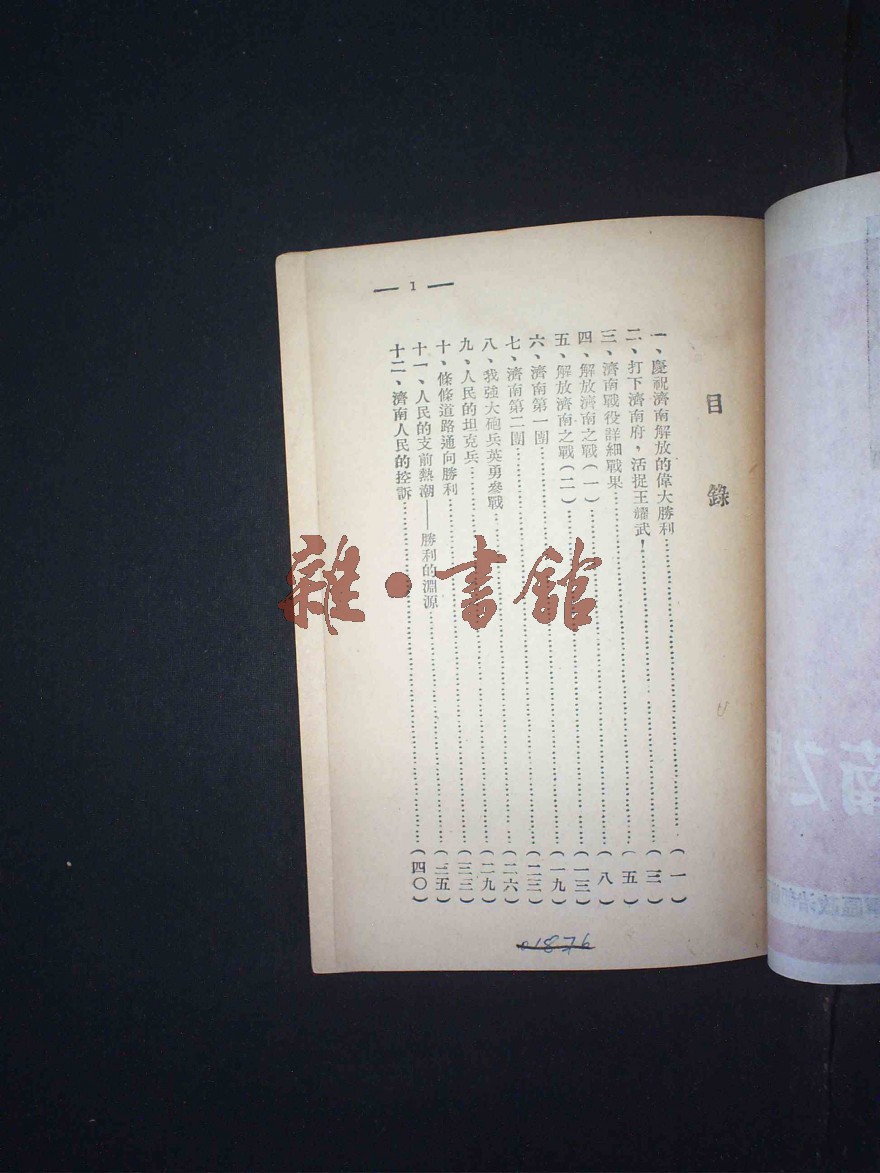 目錄
一、慶祝濟南解放的偉大勝利……(一)
二、打下濟南府，活捉王耀武！……(三)
三、濟南戰役詳細戰果……(五)
四、解放濟南之戰(一)……(八)
五、解放濟南之戰(二)……(一三)
六、濟南第一團……(一九)
七、濟南第二團……(二三)
八、我強大砲兵英勇參戰……(二六)
九、人民的坦克兵……(二九)
十、條條道路通向勝利……(三三)
十一、人民的支前熱潮——勝利的淵源……(三五)
十二、濟南人民的控訴……(四〇)
— 1 —
雜·書館
南之
區政治部